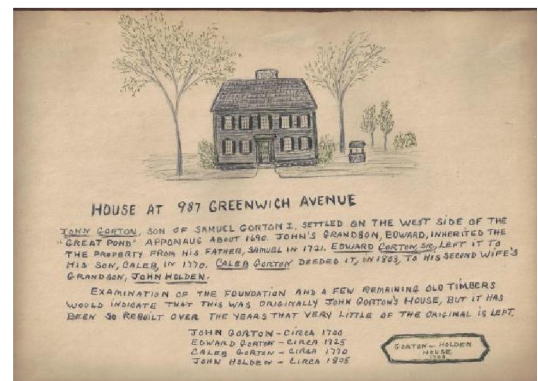 HOUSE AT 987 GREENWICH AVENUE
JOHN GORTON, SON OF SAMUEL GORTON I, SETTLED ON THE WEST SIDE OF THE
"GREAT POND" APPONAUG ABOUT 1690. JOHN'S GRANDSON, EDWARD, INHERITED THE
THE PROPERTY FROM HIS FATHER, SAMUEL IN 1721. EDWARD GORTON, SR., LEFT IT TO
HIS SON, CALEB, IN 1770. CALEB GORTON DEEDED IT, IN 1803, TO HIS SECOND WIFE'S
GRANDSON, JOHN HOLDEN.
EXAMINATION OF THE FOUNDATION AND A FEW REMAINING OLD TIMBERS
WOULD INDICATE THAT THIS WAS ORIGINALLY JOHN GORTON'S HOUSE, BUT IT HAS
BEEN SO REBUILT OVER THE YEARS THAT VERY LITTLE OF THE ORIGINAL IS LEFT.
JOHN GORTON - CIRCA 1700
EDWARD GORTON - CIRCA 1725
CALEB GORTON - CIRCA 1770
JOHN HOLDEN - CIRCA 1805
GORTON - HOLDEN
HOUSE